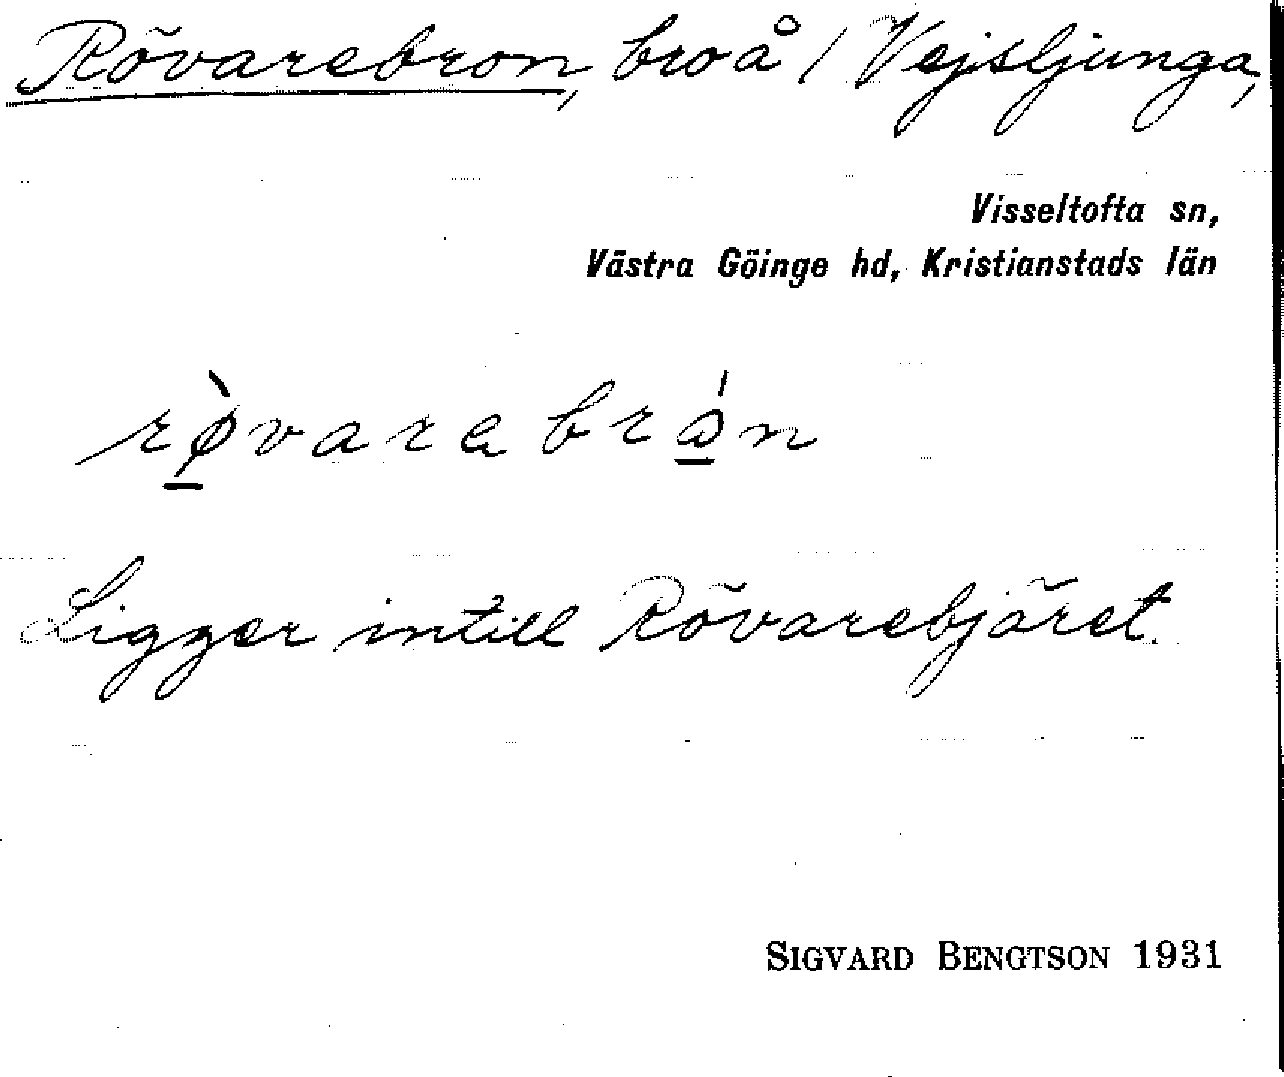 Rövarebron, bro å / Vejsljunga,
Visseltofta sn,
Västra Göinge hd, Kristianstads län
rø̀varabrån
Ligger intill Rövarebjäret.
SIGVARD BENGTSON 1931